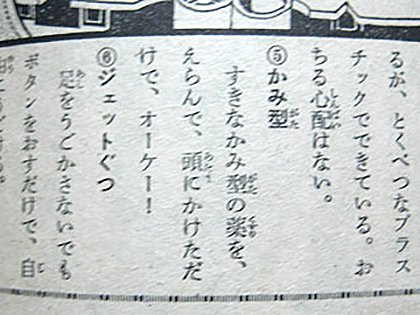 るが、とくべつなプラス
チックでできている。お
ちる心配はない。
⑤かみ型
すきなかみ型の薬を、
えらんで、頭にかけただ
けで、オーケー！
⑥ジェットぐつ
足をうごかさないでも
ボタンをおすだけで、自